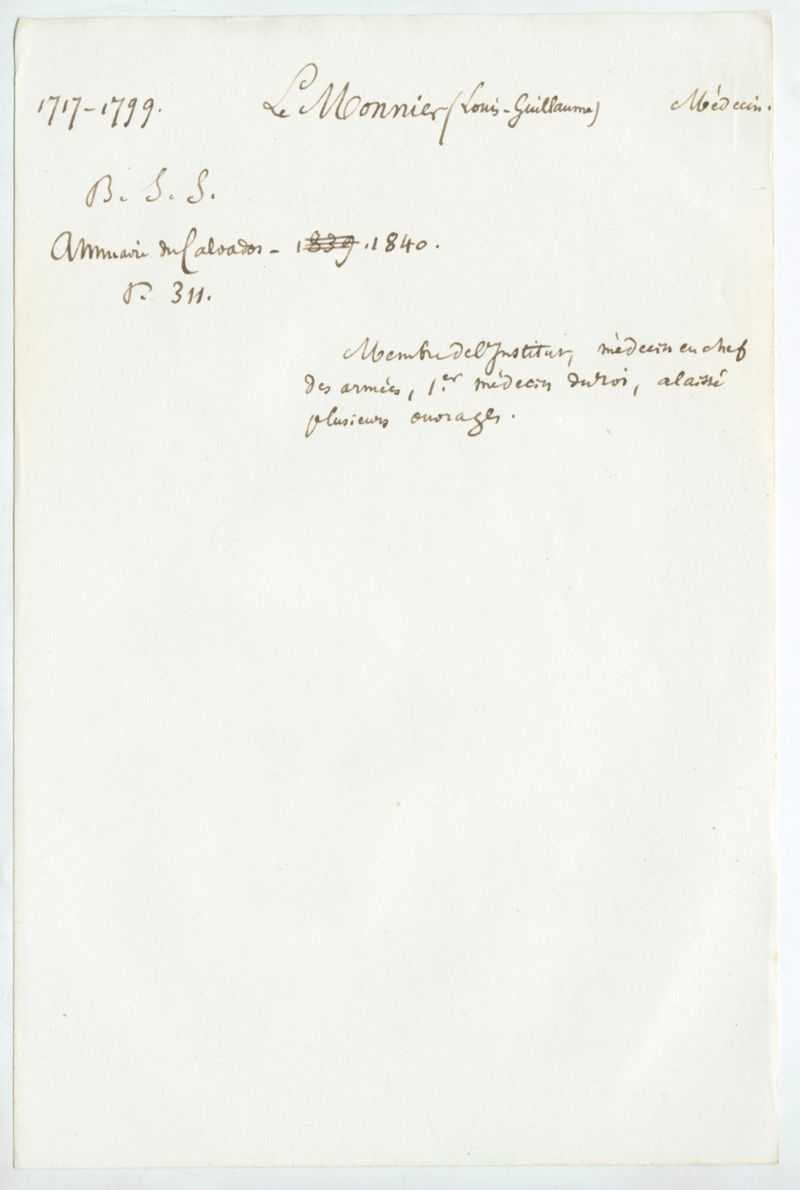 1717-1799. Le Monnier (Louis-Guillaume) Médecin.
B. S. S.
Annuaire du Calvados - 1839. 1840.
P. 311.
Membre de l'Institut, médecin en chef
des armées, 1.er médecin du roi, a laissé
plusieurs ouvrages.